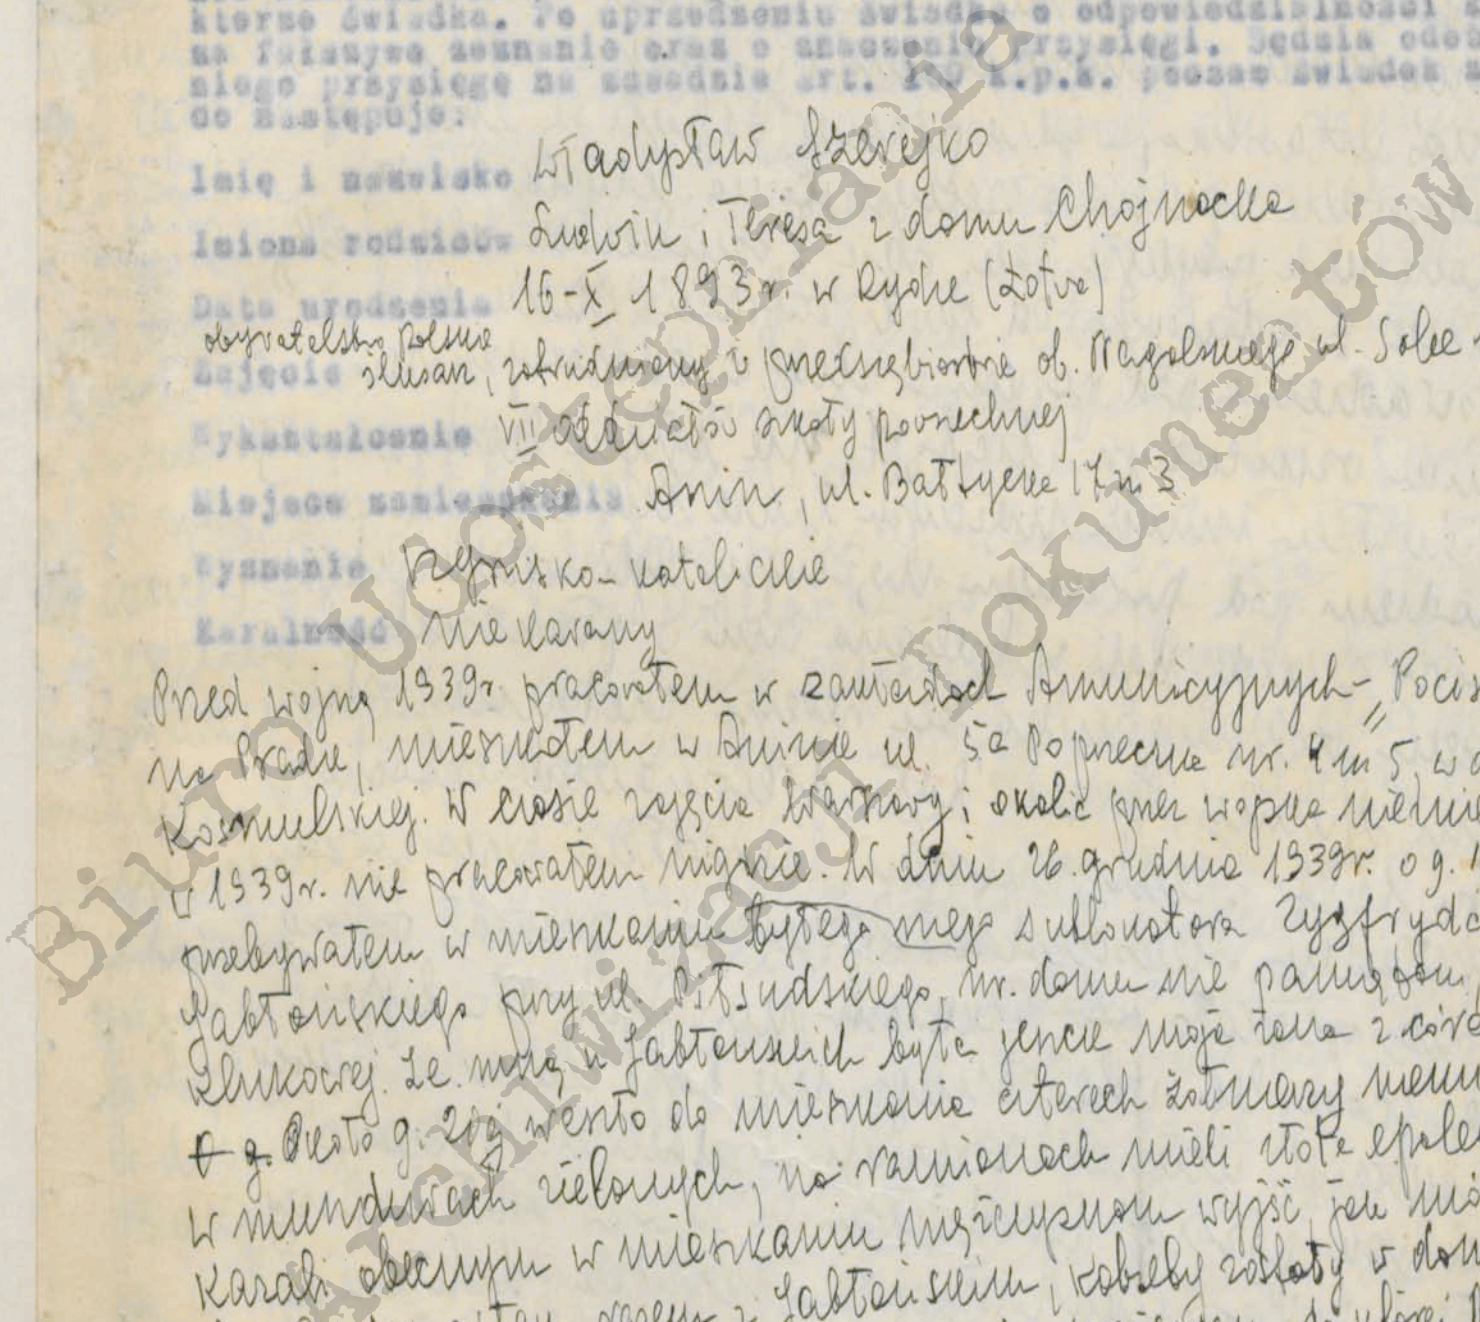 które świadka. Po uprzedzeniu świadka o odpowiedzialności
za fałszywe zeznanie oraz o znaczeniu przysięgi. Sędzia
niego przysięgę na zasadzie art. k.p.k. poczem świadek
co następuje:
Imię i nazwisko Władysław Szerejko
Imiona rodziców Ludwik i Teresa z domu Chojnacka
Data urodzenia 16-X 1893r. w Rydze (Łotwa)
obywatelstwo polskie
Zajęcie ślusarz, zatrudniony w przedsiębiorstwie ob. Nagalskiego ul. Solec
Wykształcenie VII oddziałów szkoły powszechnej
Miejsce zamieszkania Anin, ul. Bałtycka 17 m 3
Wyznanie rzymsko-katolickie
Karalność niekarany
Przed wojną 1939r. pracowałem w zakładach Amunicyjnych - „Pocis
na Pradze, mieszkałem w Aninie ul. 5a Poprzeczna nr. 4 m 5, w
Kosmulskiej. W czasie zajęcia Warszawy i okolic przez wojska niemie
w 1939r. nie pracowałem nigdzie. W dniu 26. grudnia 1939r. o g.
przebywałem w mieszkaniu byłego mego sublokatora Zygfryda
Jabłońskiego przy ul. Piłsudskiego, nr. domu nie pamiętam,
Ze mną u Jabłońskich była jeszcze moja żona z córe
O g. Około g. 20ej weszło do mieszkania czterech żołnierzy niem
w mundurach zielonych, na ramionach mieli żółte epole
Kazali obecnym w mieszkaniu mężczyznom wyjść, jak mó
razem z Jabłońskim, kobiety zostały w dom
Biuro Udostępniania
i Archiwizacji Dokumentów